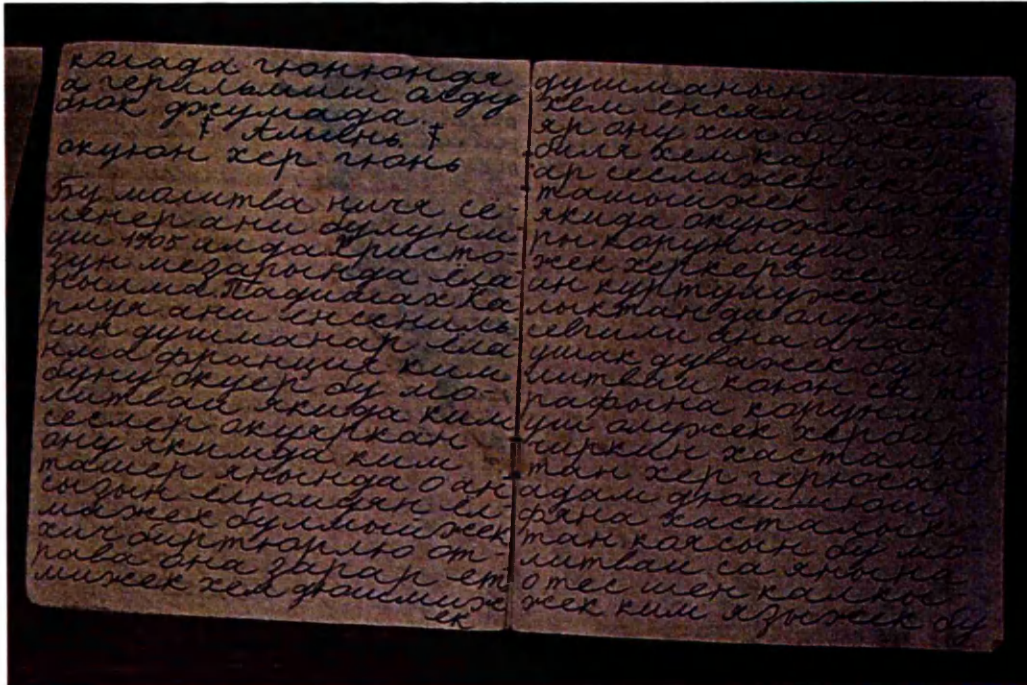 колада гюнюндя
а герильмиш олду
бюк джумада.
† Аминь †
окуюн хер гюнь
Бу молитва ничя сё-
ленер ани булунм-
уш 1705 йлда Христо-
зун мезарында ёла
ныма Падишах Ка
рлуа ани енсениль
син душманар ёла
нма франция ким
буну окуер бу мо-
литваи якида ким
сеслер окуяркан
ону якимда ким
ташер янында о ан
сызын елюмдян ел
мяжек булмыйжек
хич бир тюрлю от-
рава она зарар ет
мижек хем дюшмиж
ек
душманын
хем енсямижек
яр ону хич бир кер
биля хем кары
ар сеслижек якида
ташыйжек янында
якида окуюжек о
ры корунмуш олу
жек херкеря хем
ин куртулужек ар
лыктан да олужек
севгили она олан
ушак дуважек бу мо
литваи коюн са та
рафына корунм
уш олужек хербир
чиркин хасталык
тан хер герюсан
адам дюшмюш
фяна хасталык
тан коясын бу мо-
литваи са янына
отес шен калкы
жек ким языжек бу